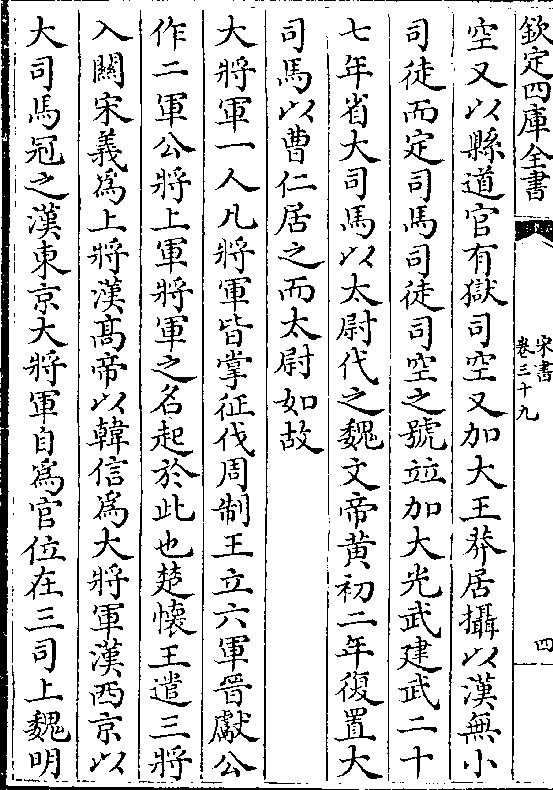 欽定四庫全書
宋書
卷三十九
四
空又以縣道官有獄司空又加大王莽居攝以漢無小
司徒而定司馬司徒司空之號竝加大光武建武二十
七年省大司馬以太尉代之魏文帝黄初二年復置大
司馬以曹仁居之而太尉如故
大將軍一人凡將軍皆掌征伐周制王立六軍晉獻公
作二軍公將上軍將軍之名起於此也楚懷王遣三將
入關宋義爲上將漢髙帝以韓信爲大將軍漢西京以
大司馬冠之漢東京大將軍自爲官位在三司上魏明